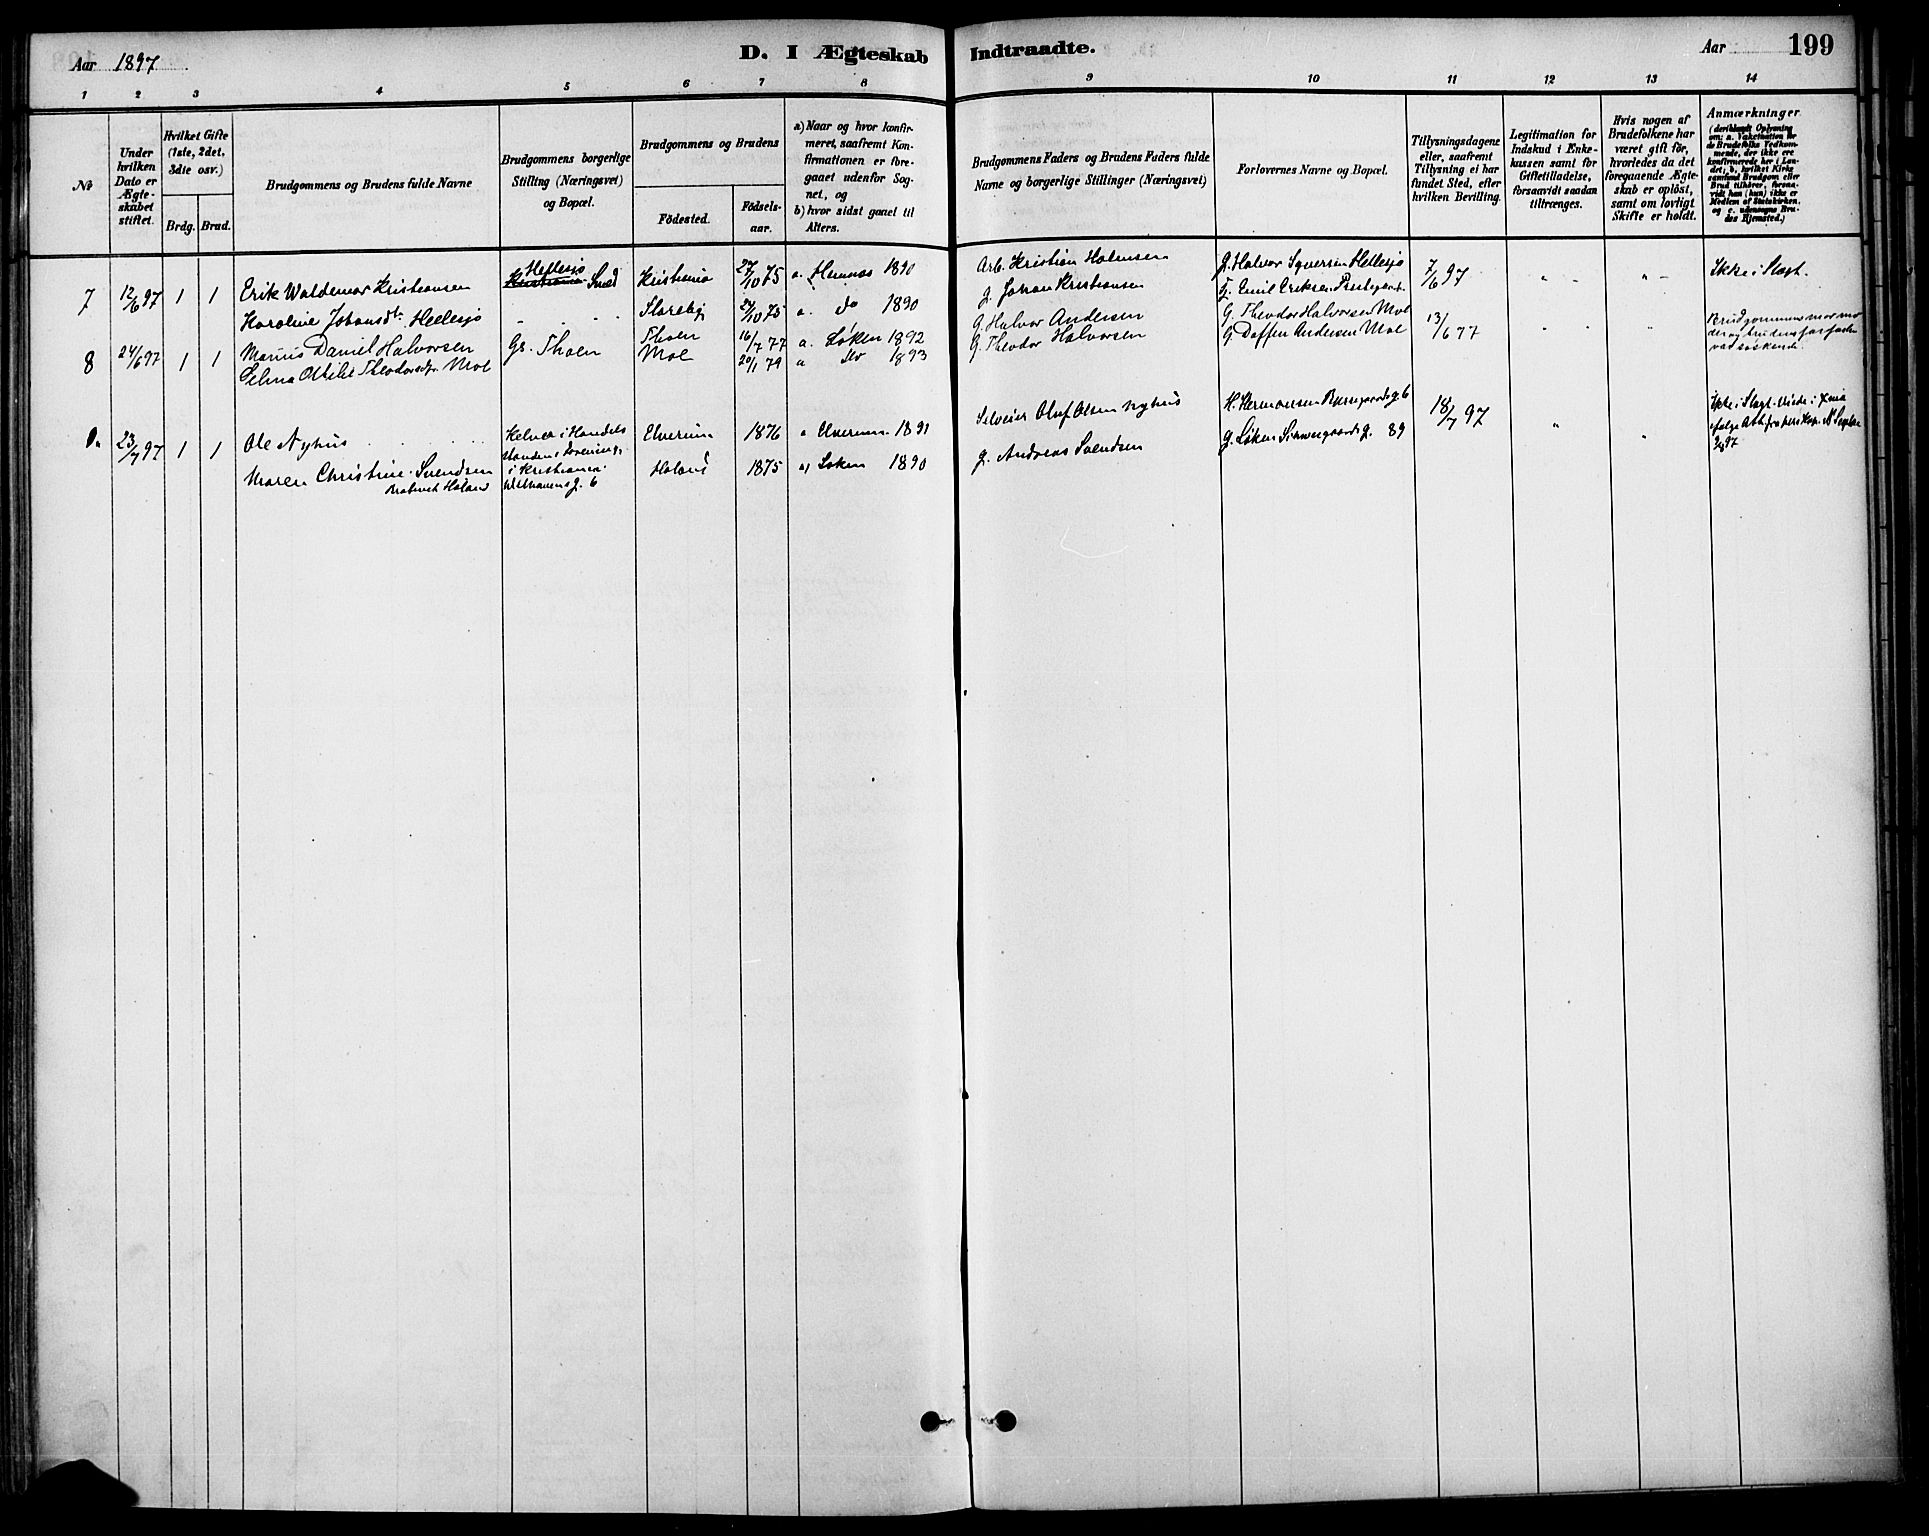 Aar 1897
D. I Ægteskab Indtraadte.
Aar
199
1 2 3 4 5 6 7 8 9 10 11 12 13 14
No
Under hvilken Dato er Ægteskabet stiftet.
Hvilket Gifte (1ste, 2det, 3die osv.)
Brdg. Brud.
Brudgommens og Brudens fulde Navne
Brudgommens borgerlige Stilling (Næringsvei) og Bopæl.
Brudgommens og Brudens
Födested.
Födsels-aar.
a) Naar og hvor konfirmeret, saafremt Konfirmationen er foregaaet udenfor Sognet, og
b) hvor sidst gaaet til Alters.
Brudgommens Faders og Brudens Faders fulde Navne og borgerlige Stillinger (Næringsvei)
Forlovernes Navne og Bopæl.
Tillysningsdagene eller, saafremt Tillysning ei har fundet Sted, efter hvilken Bevilling.
Legitimation for Indskud i Enkekassen samt for Giftetilladelse, forsaavidt saadan tiltrænges.
Hvis nogen af Brudefolkene har været gift før, hvorledes da det foregaaende Ægteskab er oplöst, samt om lovligt Skifte er holdt.
Anmærkninger
(deriblandt Oplysning om: a. Vakcination for de Brudefolks Vedkommende, der ikke ere konfirmerede her i Landet; b. hvilket Kirkesamfund Brudgom eller Brud tilhører, forsaavidt han (hun) ikke er Medlem af Statskirken, og c. udensogns Brudes Hjemsted.)
7 12/6 97 1 1 Erik Waldemar Kristiansen Hellesjø Kristiania Smed Kristiania 27/10 75 a. Hemnes 1890 Arb. Kristian Halvorsen G. Halvor Syversen Hellesjø 7/6 97 Ikke i Slagt.
Karoline Johansdt. Hellesjø Storeby 27/10 75 a. do 1890 G. Johan Kristiansen G. Emil Eriksen Prestegaard
8 24/6 97 1 1 Marius Daniel Halvorsen Gs. Thoen Thoen 16/7 77 a. Løken 1892 G. Halvor Andersen G. Theodor Halvorsen Mol 13/6 77 Brudgommens mormoder og brudens farfader var søskende.
Selma Otilie Theodorsdtr. Mol Mol 20/1 79 a do 1893 G. Theodor Halvorsen G. Daffen Andersen Mol
23/7 97 1 1 Ole Nyhus Elverum 1876 Elverum 1891 Oluf Olsen Nyhus H. Hermansen g. 6 18/7 97 Ikke i Slagt.
i Handels
i Kristiania
g. 6
Maren Christine Svendsen Høland 1875 a) Løken 1890 G. Andreas Svendsen G. Løken Schweigaardsg. 89
Høland